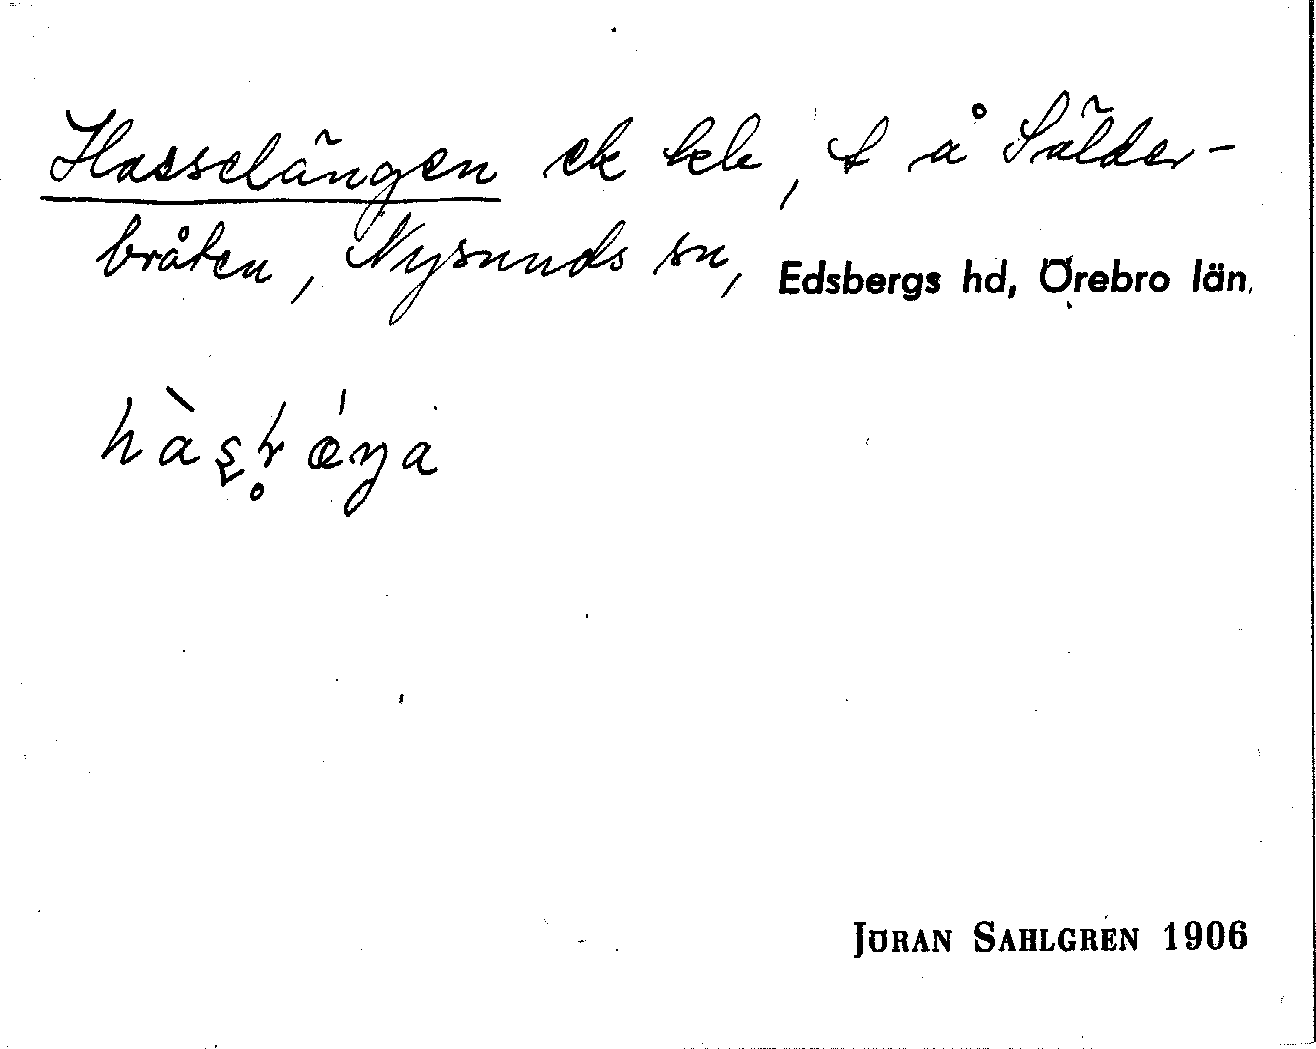 Hasselängen ek bek, t å Sälder-
bråten, Nysunds sn, Edsbergs hd, Örebro län.
JÖRAN SAHLGREN 1906